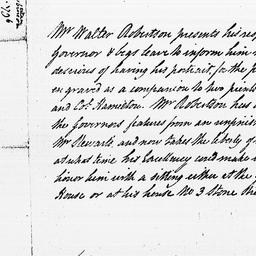 Mr Walter Robertson presents his res
Governor & begs leave to inform him
desirous of having his portrait, for the p
engraved as a companion to two prints
and Col. Hamilton. Mr Robertson has
the Governors features from an unfinish
Mr Stewarts, and now takes the liberty of
at what time his Excellency could make it
honor him with a sitting either at the
House or at his house No 3 Stone Stre